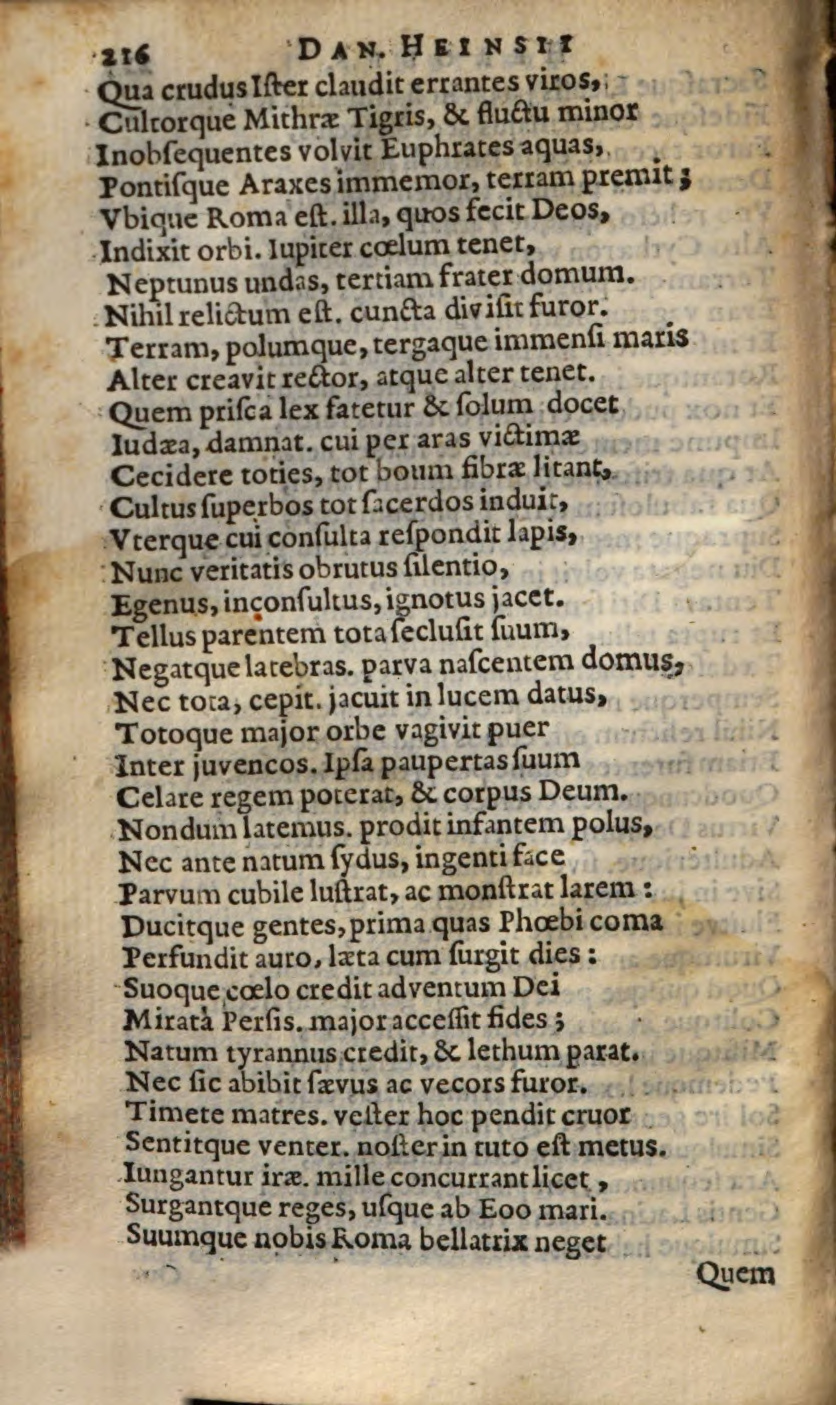 216 DAN. HEINSII
Qua crudus Iſter claudit errantes viros,
Cultorque Mithræ Tigris, & fluctu minor
Inobſequentes volvit Euphrates aquas,
Pontiſque Araxes immemor, terram premit;
Vbique Roma eſt. illa, quos fecit Deos,
Indixit orbi. Iupiter cœlum tenet,
Neptunus undas, tertiam frater domum.
Nihil relictum eſt. cuncta diviſit furor.
Terram, polumque, tergaque immenſi maris
Alter creavit rector, atque alter tenet.
Quem priſca lex fatetur & ſolum docet
Iudæa, damnat. cui per aras victimæ
Cecidere toties, tot boum fibræ litant,
Cultus ſuperbos tot ſacerdos induit,
Vterque cui conſulta reſpondit lapis,
Nunc veritatis obrutus ſilentio,
Egenus, inconſultus, ignotus jacet.
Tellus parentem tota ſecluſit ſuum,
Negatque latebras. parva naſcentem domus,
Nec tota, cepit. jacuit in lucem datus,
Totoque major orbe vagivit puer
Inter juvencos. Ipſa paupertas ſuum
Celare regem poterat, & corpus Deum.
Nondum latemus. prodit infantem polus,
Nec ante natum ſydus, ingenti face
Parvum cubile luſtrat, ac monſtrat larem:
Ducitque gentes, prima quas Phœbi coma
Perfundit auro, læta cum ſurgit dies:
Suoque cœlo credit adventum Dei
Mirata Perſis. major acceſſit fides;
Natum tyrannus credit, & lethum parat.
Nec ſic abibit ſævus ac vecors furor.
Timete matres. veſter hoc pendit cruor
Sentitque venter. noſter in tuto eſt metus.
Iungantur iræ. mille concurrant licet,
Surgantque reges, uſque ab Eoo mari.
Suumque nobis Roma bellatrix neget
Quem